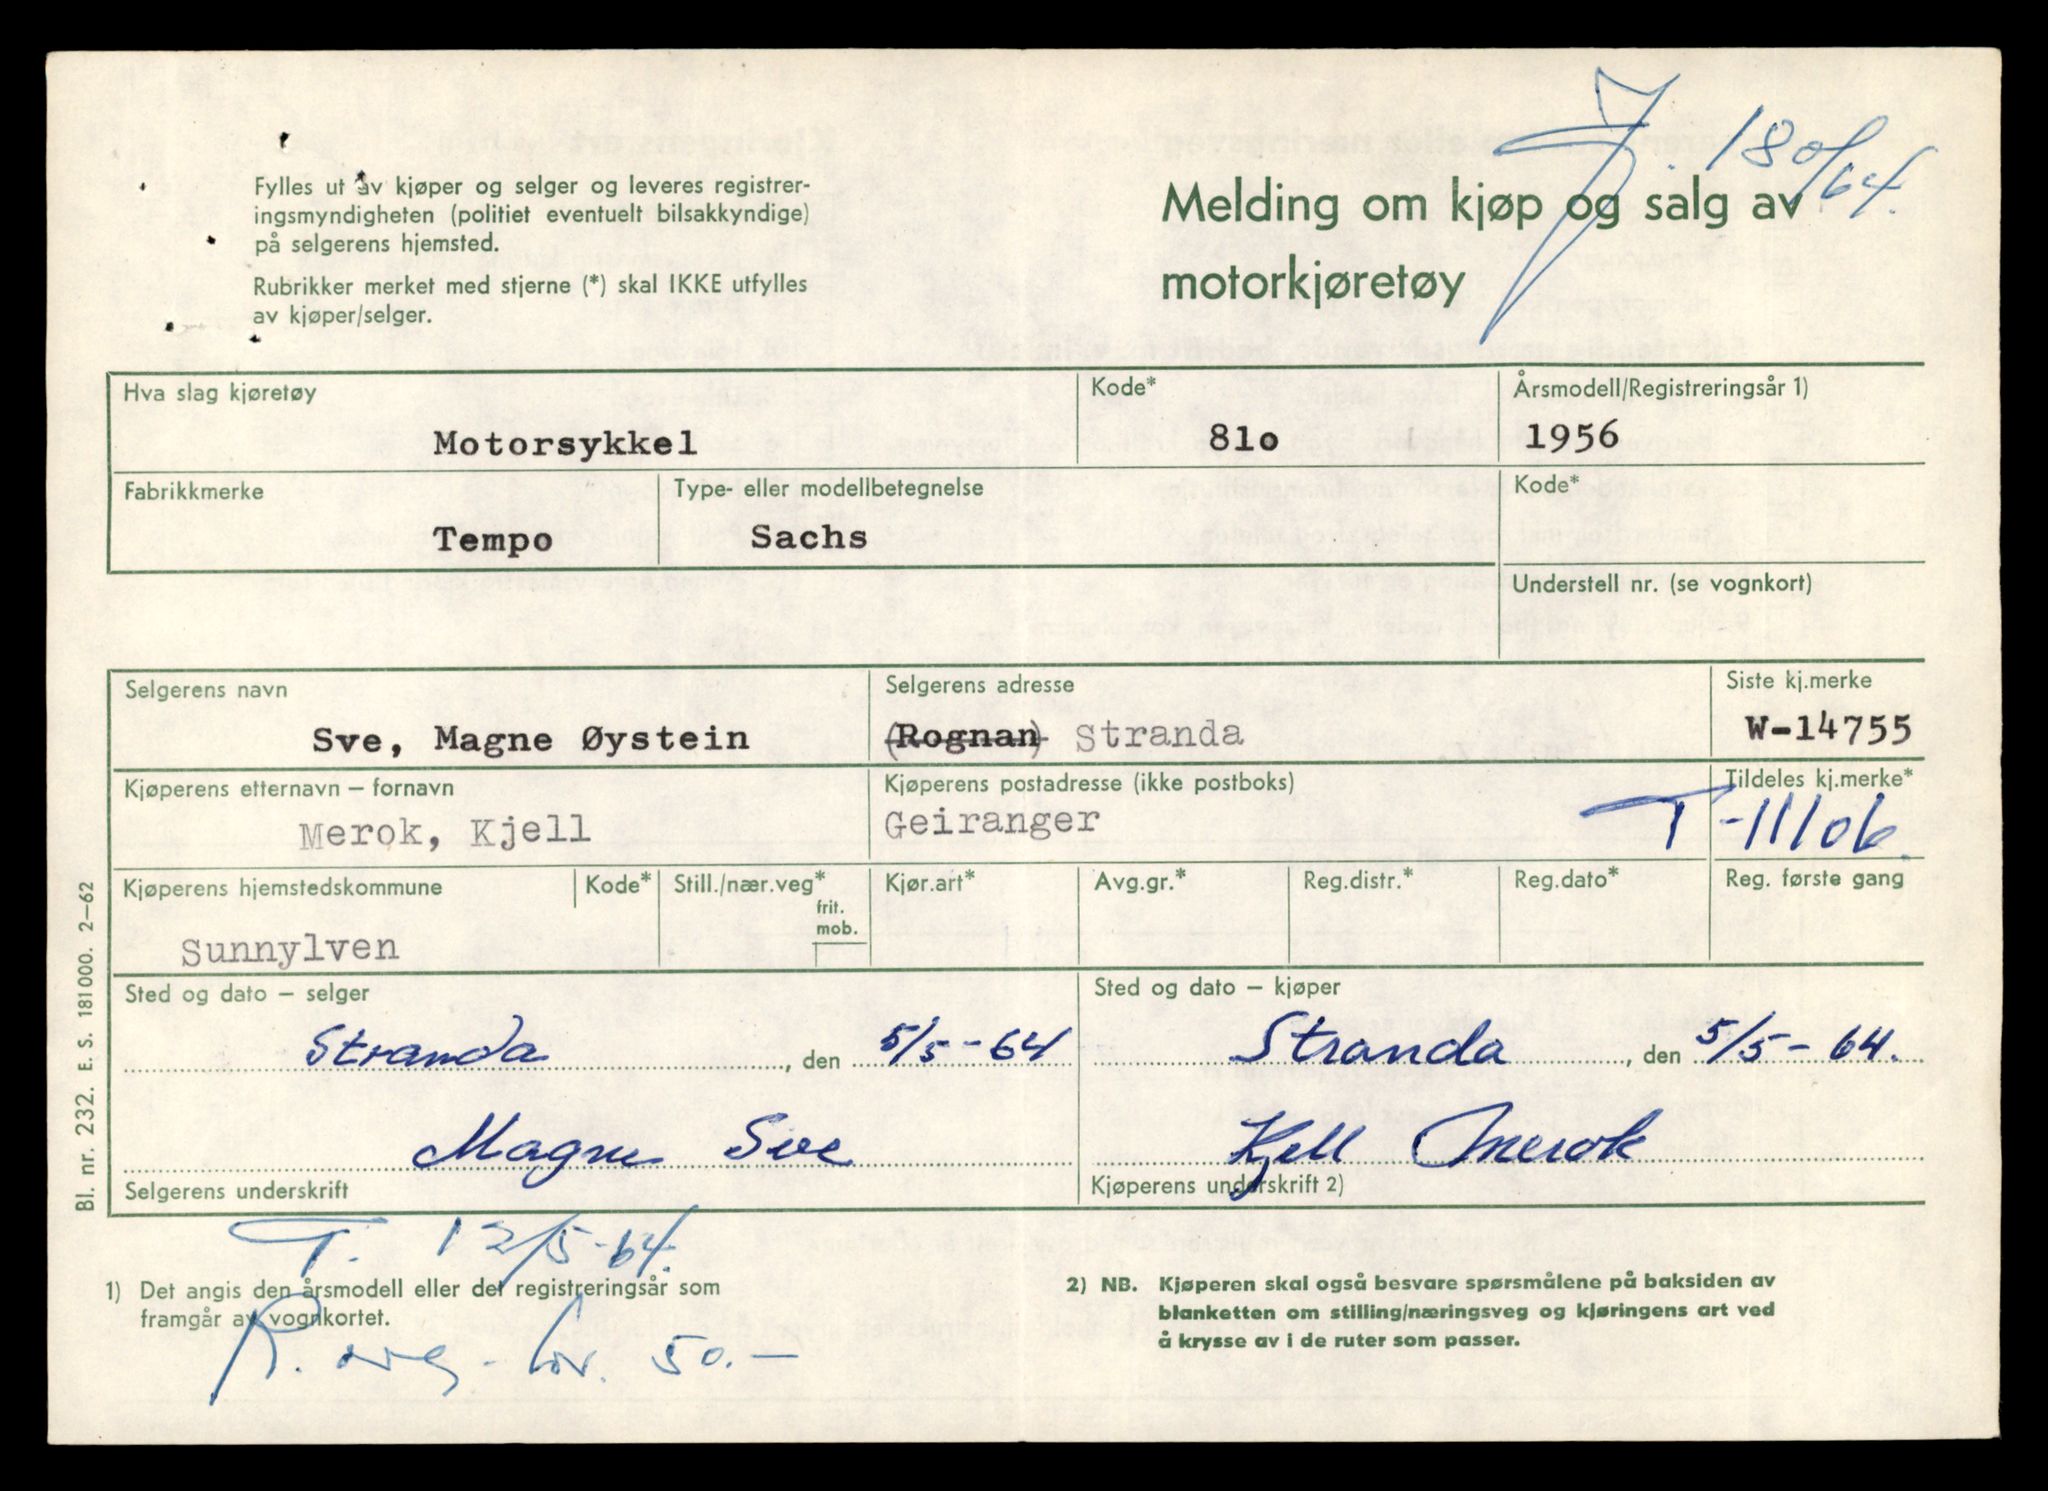 J. 180/64.
Fylles ut av kjøper og selger og leveres registrer-
ingsmyndigheten (politiet eventuelt bilsakkyndige)
på selgerens hjemsted.
Rubrikker merket med stjerne (*) skal IKKE utfylles
av kjøper/selger.
Melding om kjøp og salg av
motorkjøretøy
Hva slag kjøretøy Kode* Årsmodell/Registreringsår 1)
Motorsykkel 81o 1956
Fabrikkmerke Type- eller modellbetegnelse Kode*
Tempo Sachs
Understell nr. (se vognkort)
Selgerens navn Selgerens adresse Siste kj.merke
Sve, Magne Øystein (Rognan) Stranda W-14755
Kjøperens etternavn – fornavn Kjøperens postadresse (ikke postboks) Tildeles kj.merke*
Merok, Kjell Geiranger T-11106.
Kjøperens hjemstedskommune Kode* Still./nær.veg* Kjør.art* Avg.gr.* Reg.distr.* Reg.dato* Reg. første gang
frit.
mob.
Sunnylven
Sted og dato – selger Sted og dato – kjøper
Stranda, den 5/5-64 Stranda, den 5/5-64.
Magne Sve Kjell Merok
Selgerens underskrift Kjøperens underskrift 2)
T. 12/5-64.
1) Det angis den årsmodell eller det registreringsår som
framgår av vognkortet.
R. avg. kr. 50.-
2) NB. Kjøperen skal også besvare spørsmålene på baksiden av
blanketten om stilling/næringsveg og kjøringens art ved
å krysse av i de ruter som passer.
Bl. nr. 232. E. S. 181000. 2-62